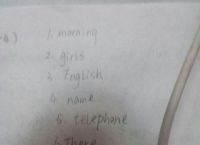 4)
1. morning
2. girls
3. English
4. name
5. telephone
6. There